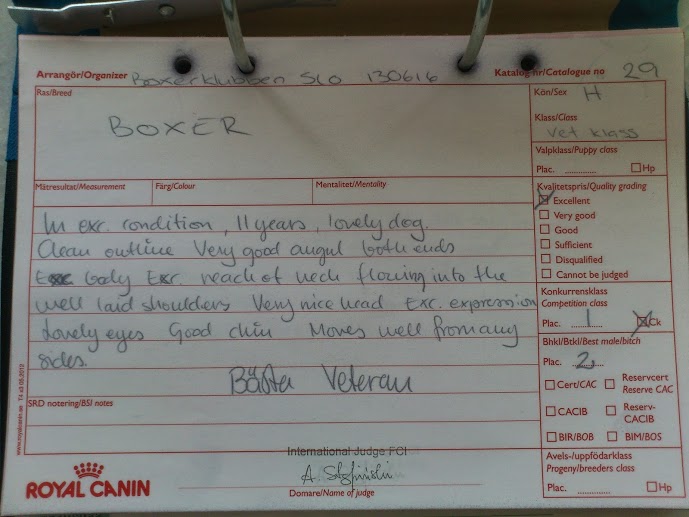 Arrangör/Organizer Boxerklubben SLO 130616 Katalog nr/Catalogue no 29
Ras/Breed
BOXER
Kön/Sex H
Klass/Class
Vet klass
Valpklass/Puppy class
Plac. ............ Hp
Mätresultat/Measurement Färg/Colour Mentalitet/Mentality
Kvalitetspris/Quality grading
Excellent
Very good
Good
Sufficient
Disqualified
Cannot be judged
In exc. condition, 11 years, lovely dog.
Clean outline Very good angul both ends
Exc body Exc. reach of neck flowing into the
well laid shoulders Very nice head Exc. expression
Lovely eyes Good chin Moves well from any
sides.
Bästa Veteran
Konkurrensklass
Competition class
Plac. 1 Ck
Bhkl/Btkl/Best male/bitch
Plac. 2
Cert/CAC Reservcert
Reserve CAC
CACIB Reserv-
CACIB
BIR/BOB BIM/BOS
SRD notering/BSI notes
www.royalcanin.se
International Judge FCI
Domare/Name of judge
ROYAL CANIN
Avels-/uppfödarklass
Progeny/breeders class
Plac. ............ Hp